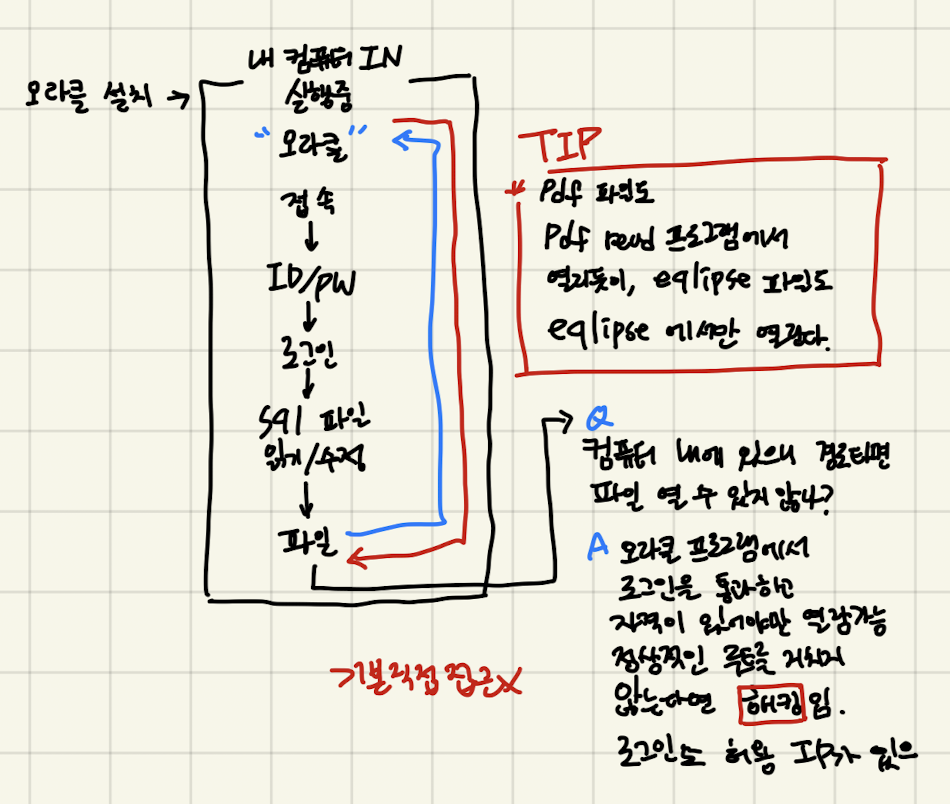 내 컴퓨터 IN
오라클 설치 →
실행중
"오라클"
접속
↓
ID/PW
↓
로그인
↓
sql 파일
읽기/수정
↓
파일
TIP
Pdf 파일도
Pdf 프로그램에서
열리듯이, eqlipse 파일도
eqlipse 에서만 열린다.
Q
컴퓨터 내에 있으니 경로타면
파일 열 수 있지 않나?
A 오라클 프로그램에서
로그인을 통과하고
자격이 있어야만 열람가능
정상적인 루트를 거치지
않는다면 해킹임.
로그인도 허용 IP가 있으
기본직접접근X